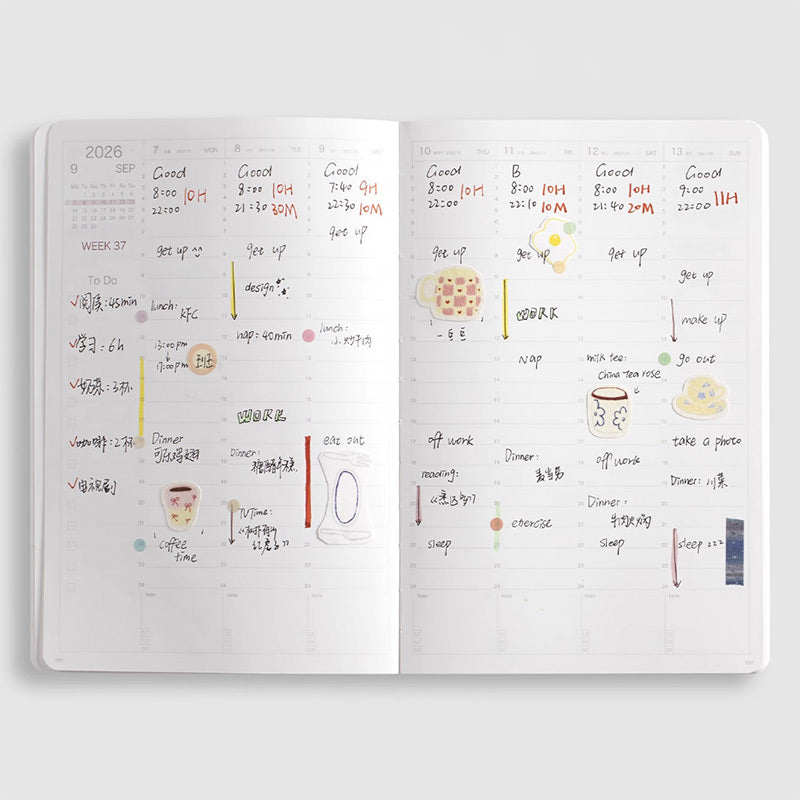 2026
9 SEP
Mo Tu We Th Fr Sa Su
WEEK 37
To Do
✓阅读:45min
✓学习:6h
✓奶茶:3杯
✓咖啡:2杯
✓电视剧
7 MON
Good
8:00 10H
22:00
get up
lunch:
KFC
13:00pm
↓
17:00pm
Dinner
可乐鸡翅
coffee
time
Note
8 TUE
Good
8:00 10H
21:30 30M
get up
design
nap:40min
WORK
Dinner:
TVTime:
Note
9 WED
Good
7:40 9H
22:30 10M
get up
lunch:
小炒牛肉
eat out
Note
10 THU
Good
8:00 10H
22:00
get up
off work
reading:
sleep
Note
11 FRI
B
8:00 10H
22:10 10M
get up
WORK
Nap
Dinner:
麦当劳
exercise
Note
12 SAT
Good
8:00 10H
21:40 20M
get up
milk tee:
China-tea rose
off work
Dinner:
牛肉火锅
sleep
Note
13 SUN
Good
9:00 11H
22:00
get up
make up
go out
take a photo
Dinner:川菜
sleep zzz
Note